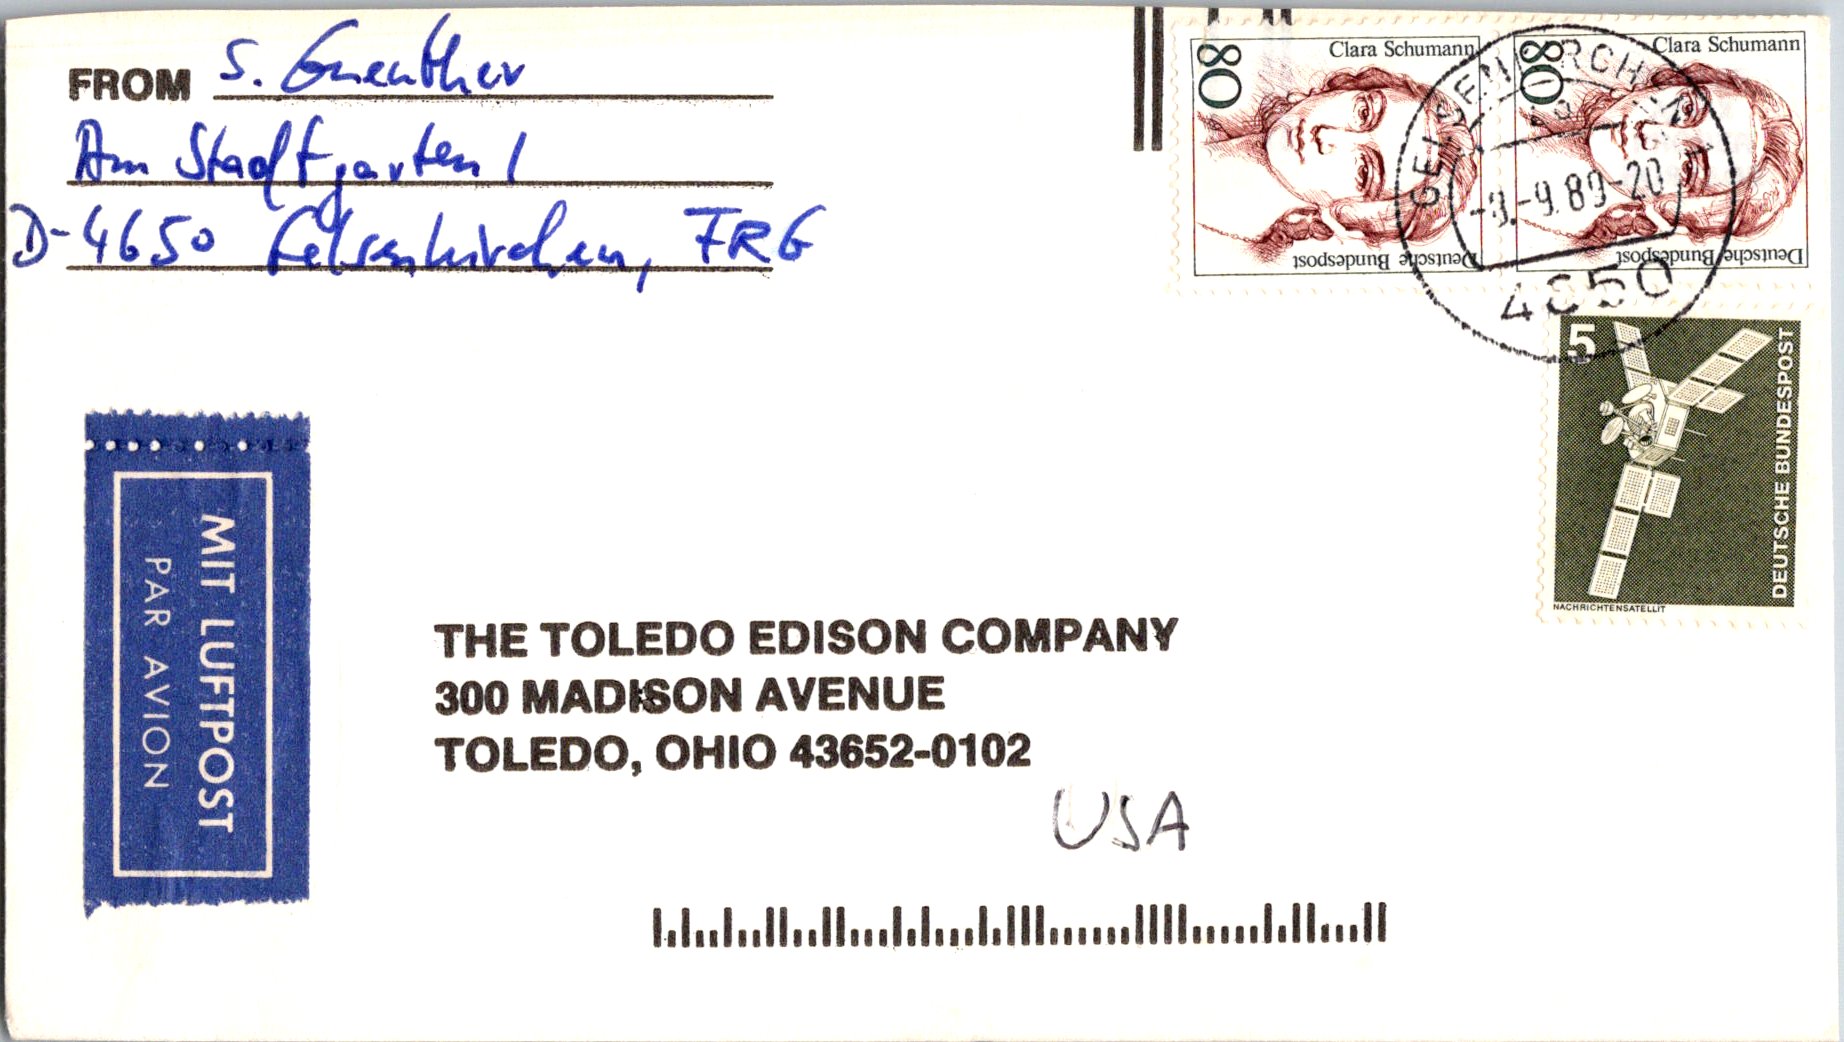 FROM S. Guenther
Am Stadtgarten 1
D-4650 Gelsenkirchen, FRG
80 Clara Schumann
Deutsche Bundespost
80 Clara Schumann
Deutsche Bundespost
GELSENKIRCHEN
-9.89-20
4650
5
DEUTSCHE BUNDESPOST
NACHRICHTENSATELLIT
MIT LUFTPOST
PAR AVION
THE TOLEDO EDISON COMPANY
300 MADISON AVENUE
TOLEDO, OHIO 43652-0102
USA